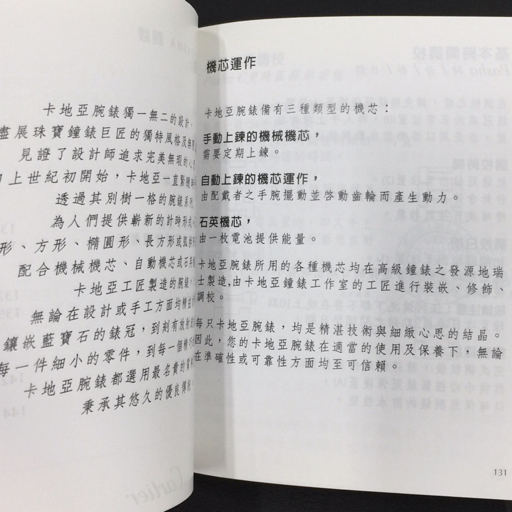 卡地亞腕錶獨一無二的設計，
盡展珠寶鐘錶巨匠的獨特風格及
見證了設計師追求完美無瑕的
上世紀初開始，卡地亞一直
透過其別樹一格的腕錶系
為人們提供嶄新的計時形
形、方形、橢圓形、長方形或
配合機械機芯、自動機芯或
卡地亞工匠製造的腕錶，
無論在設計或手工方面均
鑲嵌藍寶石的錶冠，到刻有
每一件細小的零件，到每一個
卡地亞腕錶都選用最名貴的
秉承其悠久的優良傳統
Cartier
機芯運作
卡地亞腕錶備有三種類型的機芯：
手動上鍊的機械機芯，
需要定期上鍊。
自動上鍊的機芯運作，
由配戴者之手腕擺動並啓動齒輪而產生動力。
石英機芯，
由一枚電池提供能量。
卡地亞腕錶所用的各種機芯均在高級鐘錶之發源地瑞
士製造，由卡地亞鐘錶工作室的工匠進行裝嵌、修飾、
調校。
每只卡地亞腕錶，均是精湛技術與細緻心思的結晶。
因此，您的卡地亞腕錶在適當的使用及保養下，無論
在準確性或可靠性方面均至可信賴。
131